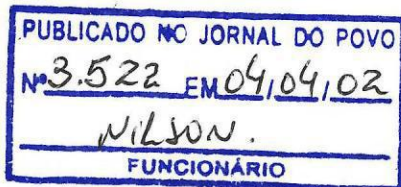 PUBLICADO NO JORNAL DO POVO
Nº 3.522 EM 04/04/02
NILSON.
FUNCIONÁRIO